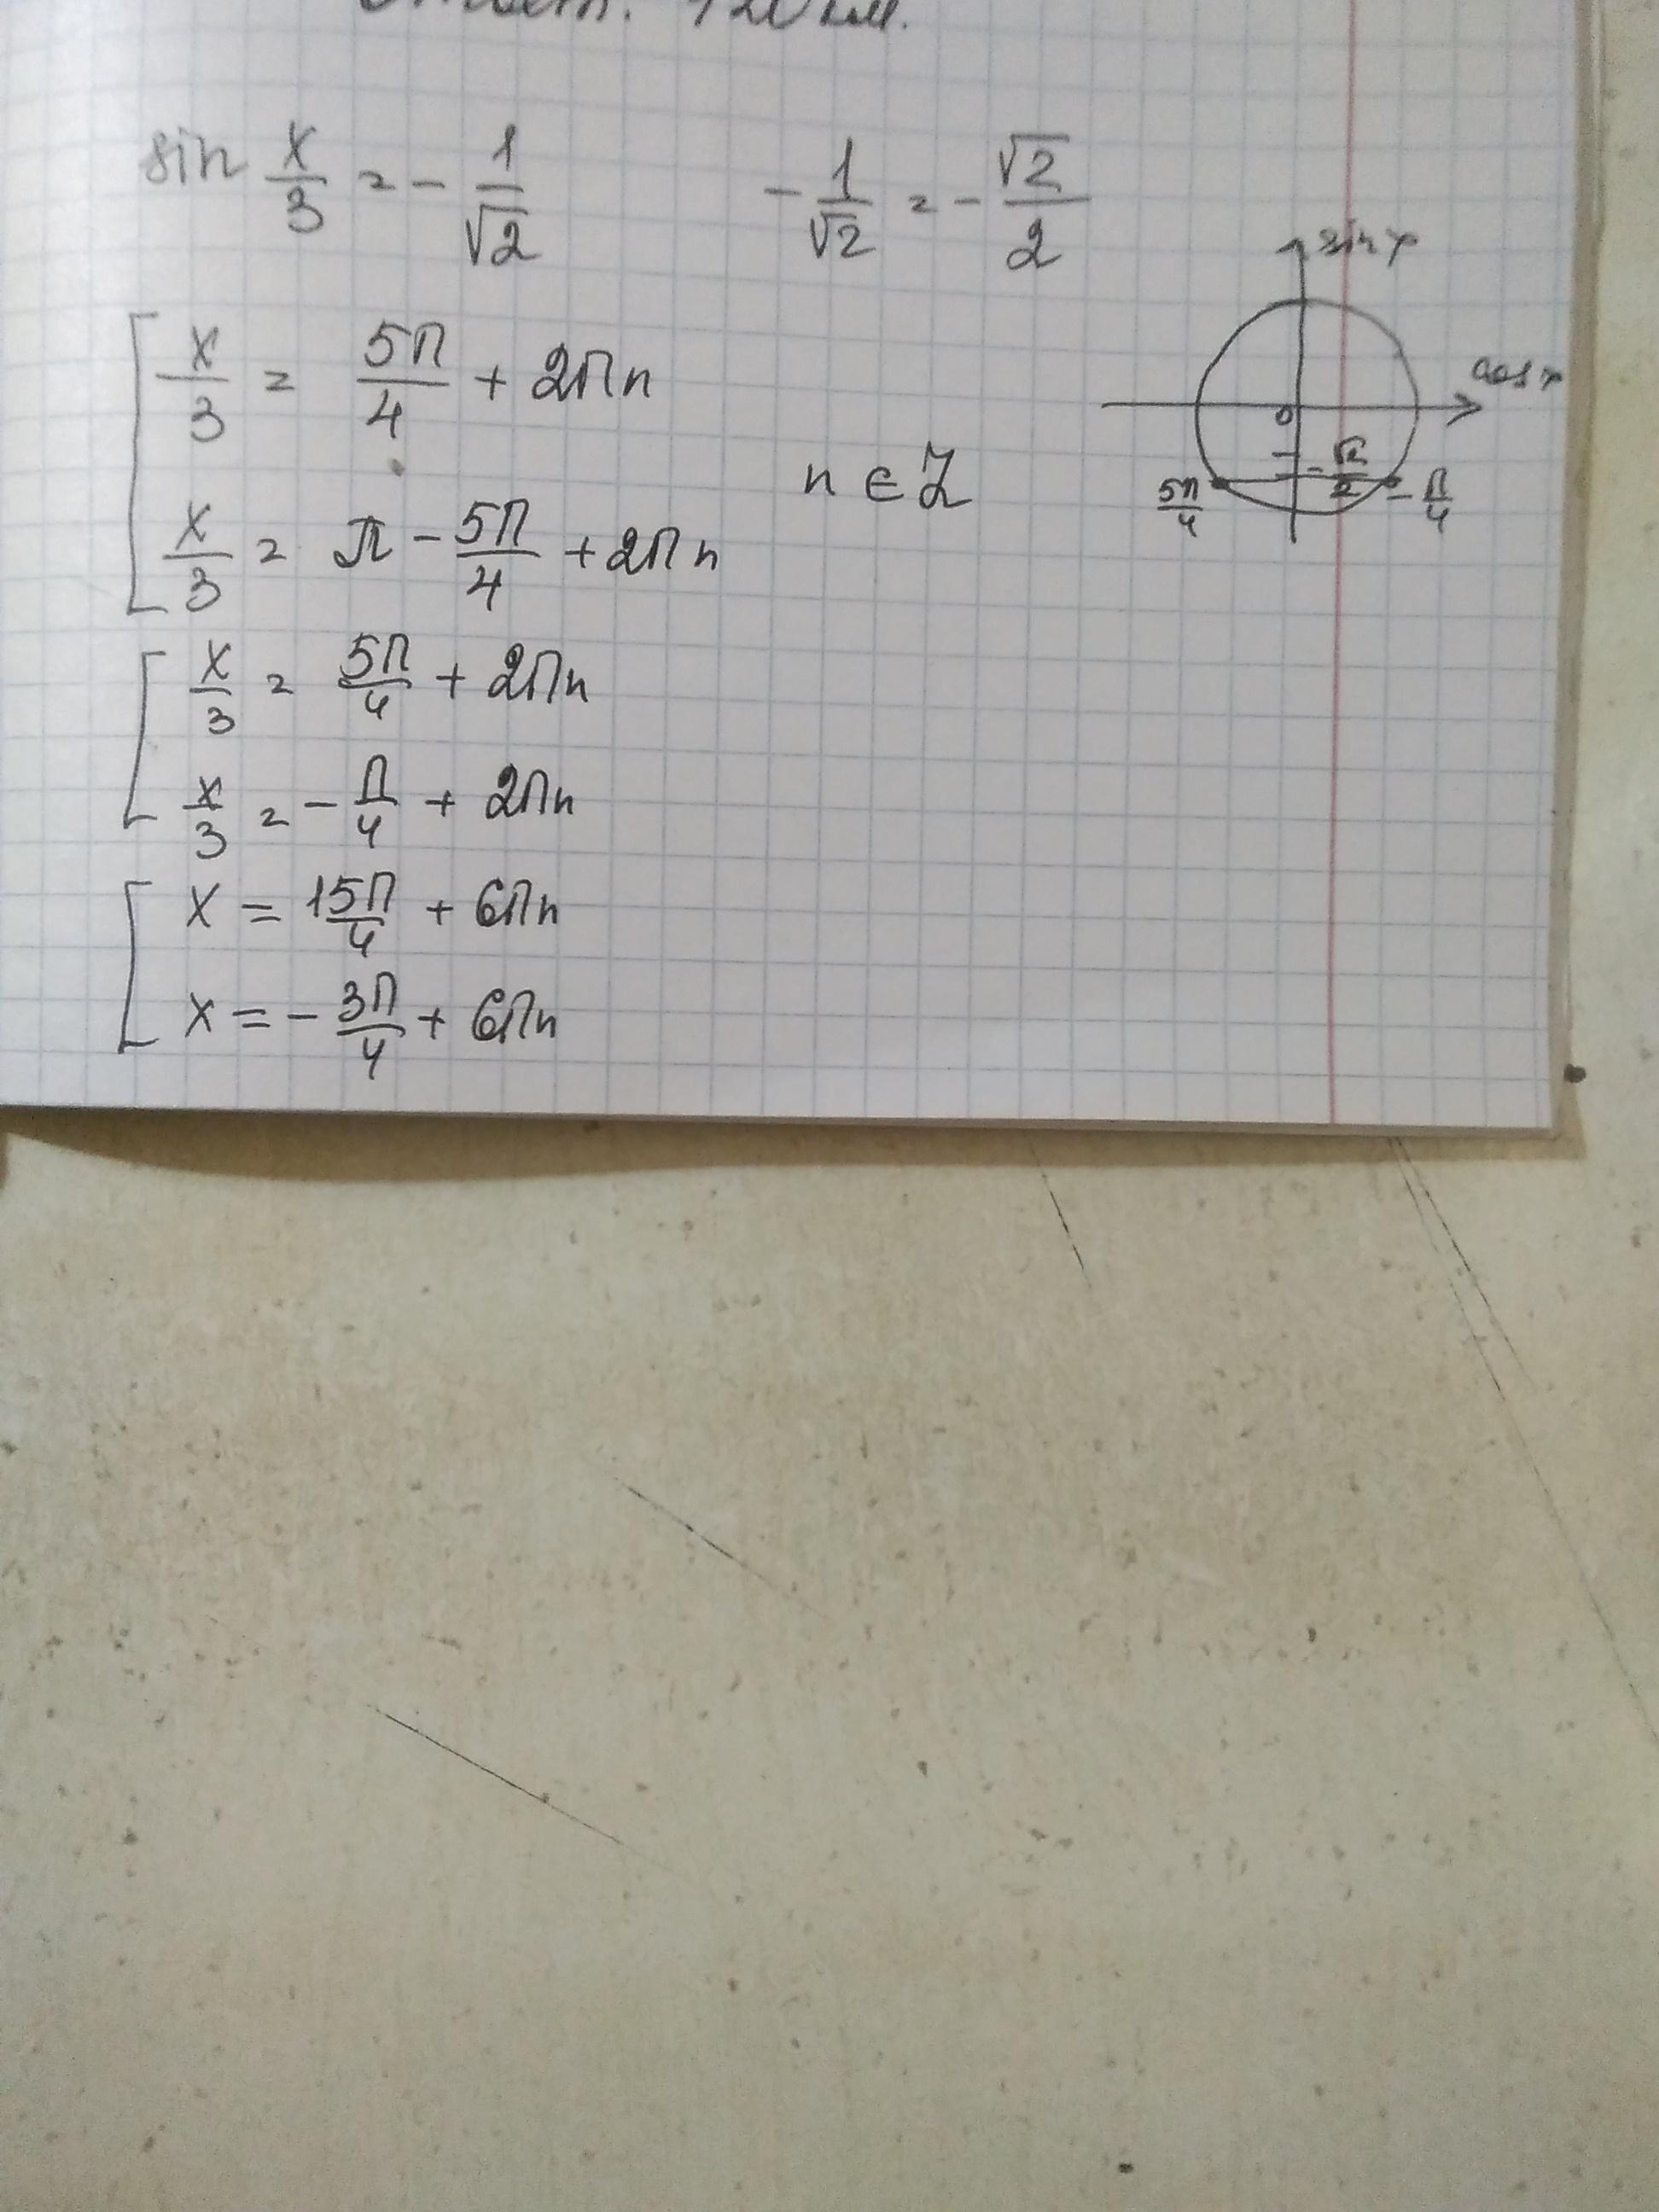 sin x/3 = - 1/√2    - 1/√2 = - √2/2
sin x
cos x
0
- √2/2
5π/4
- π/4
[ x/3 = 5π/4 + 2πn
x/3 = π - 5π/4 + 2πn
n ∈ Z
[ x/3 = 5π/4 + 2πn
x/3 = - π/4 + 2πn
[ x = 15π/4 + 6πn
x = - 3π/4 + 6πn